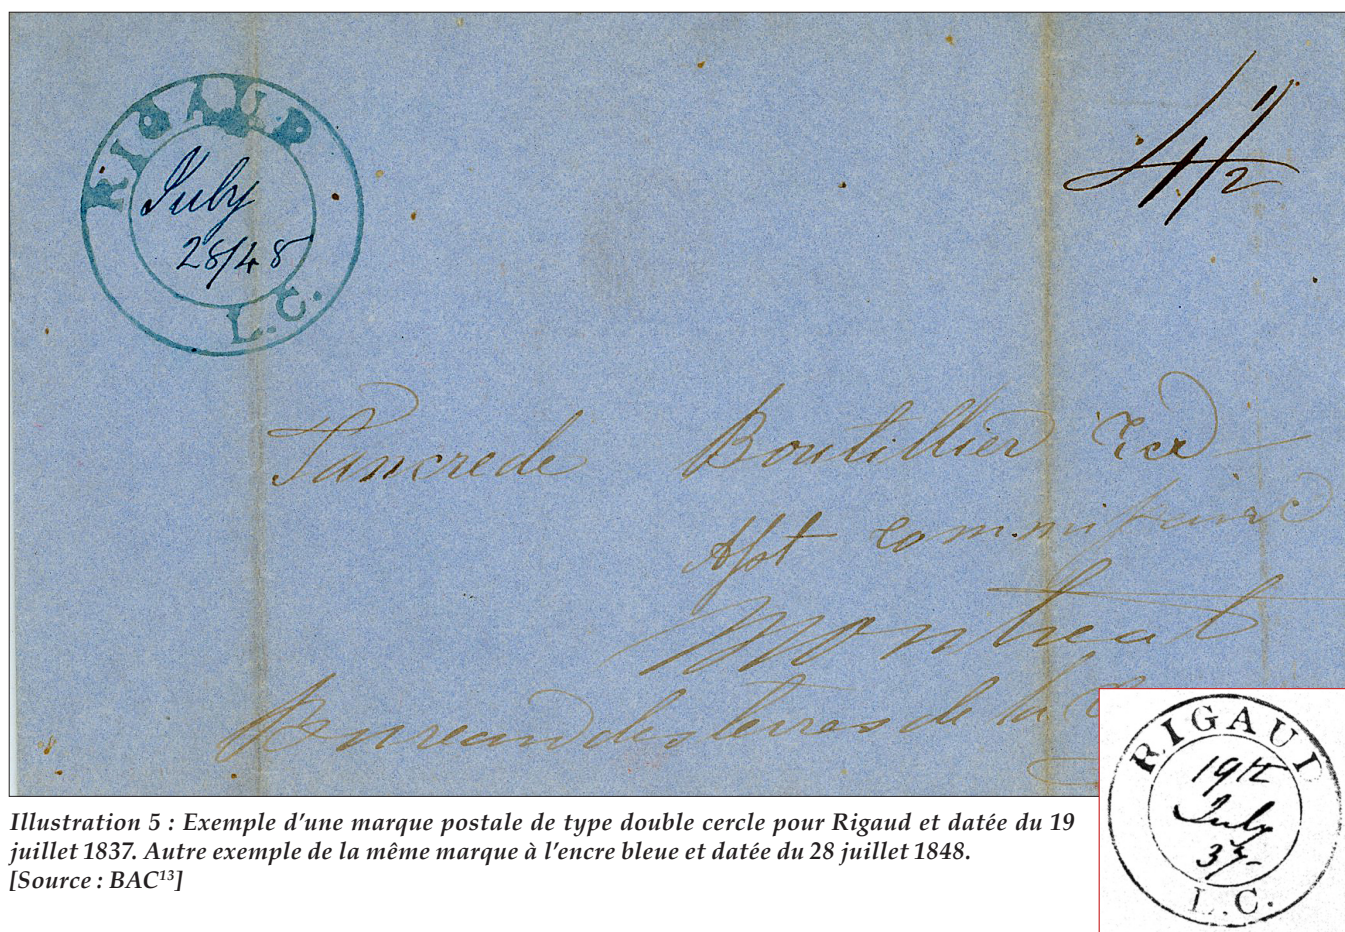 RIGAUD
July
28/48
L.C.
4 1/2
Tancrede Boutillier
Asst commissaire
Montreal
Bureau des terres de la
RIGAUD
19th
July
37-
L.C.
Illustration 5 : Exemple d'une marque postale de type double cercle pour Rigaud et datée du 19
juillet 1837. Autre exemple de la même marque à l'encre bleue et datée du 28 juillet 1848.
[Source : BAC¹³]